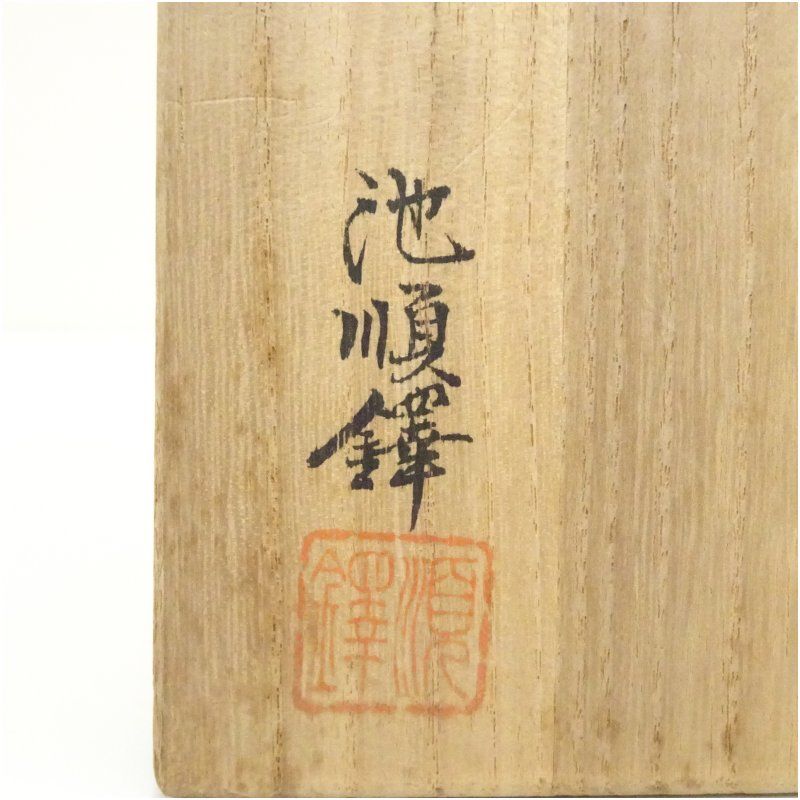 池順鐸
順鐸